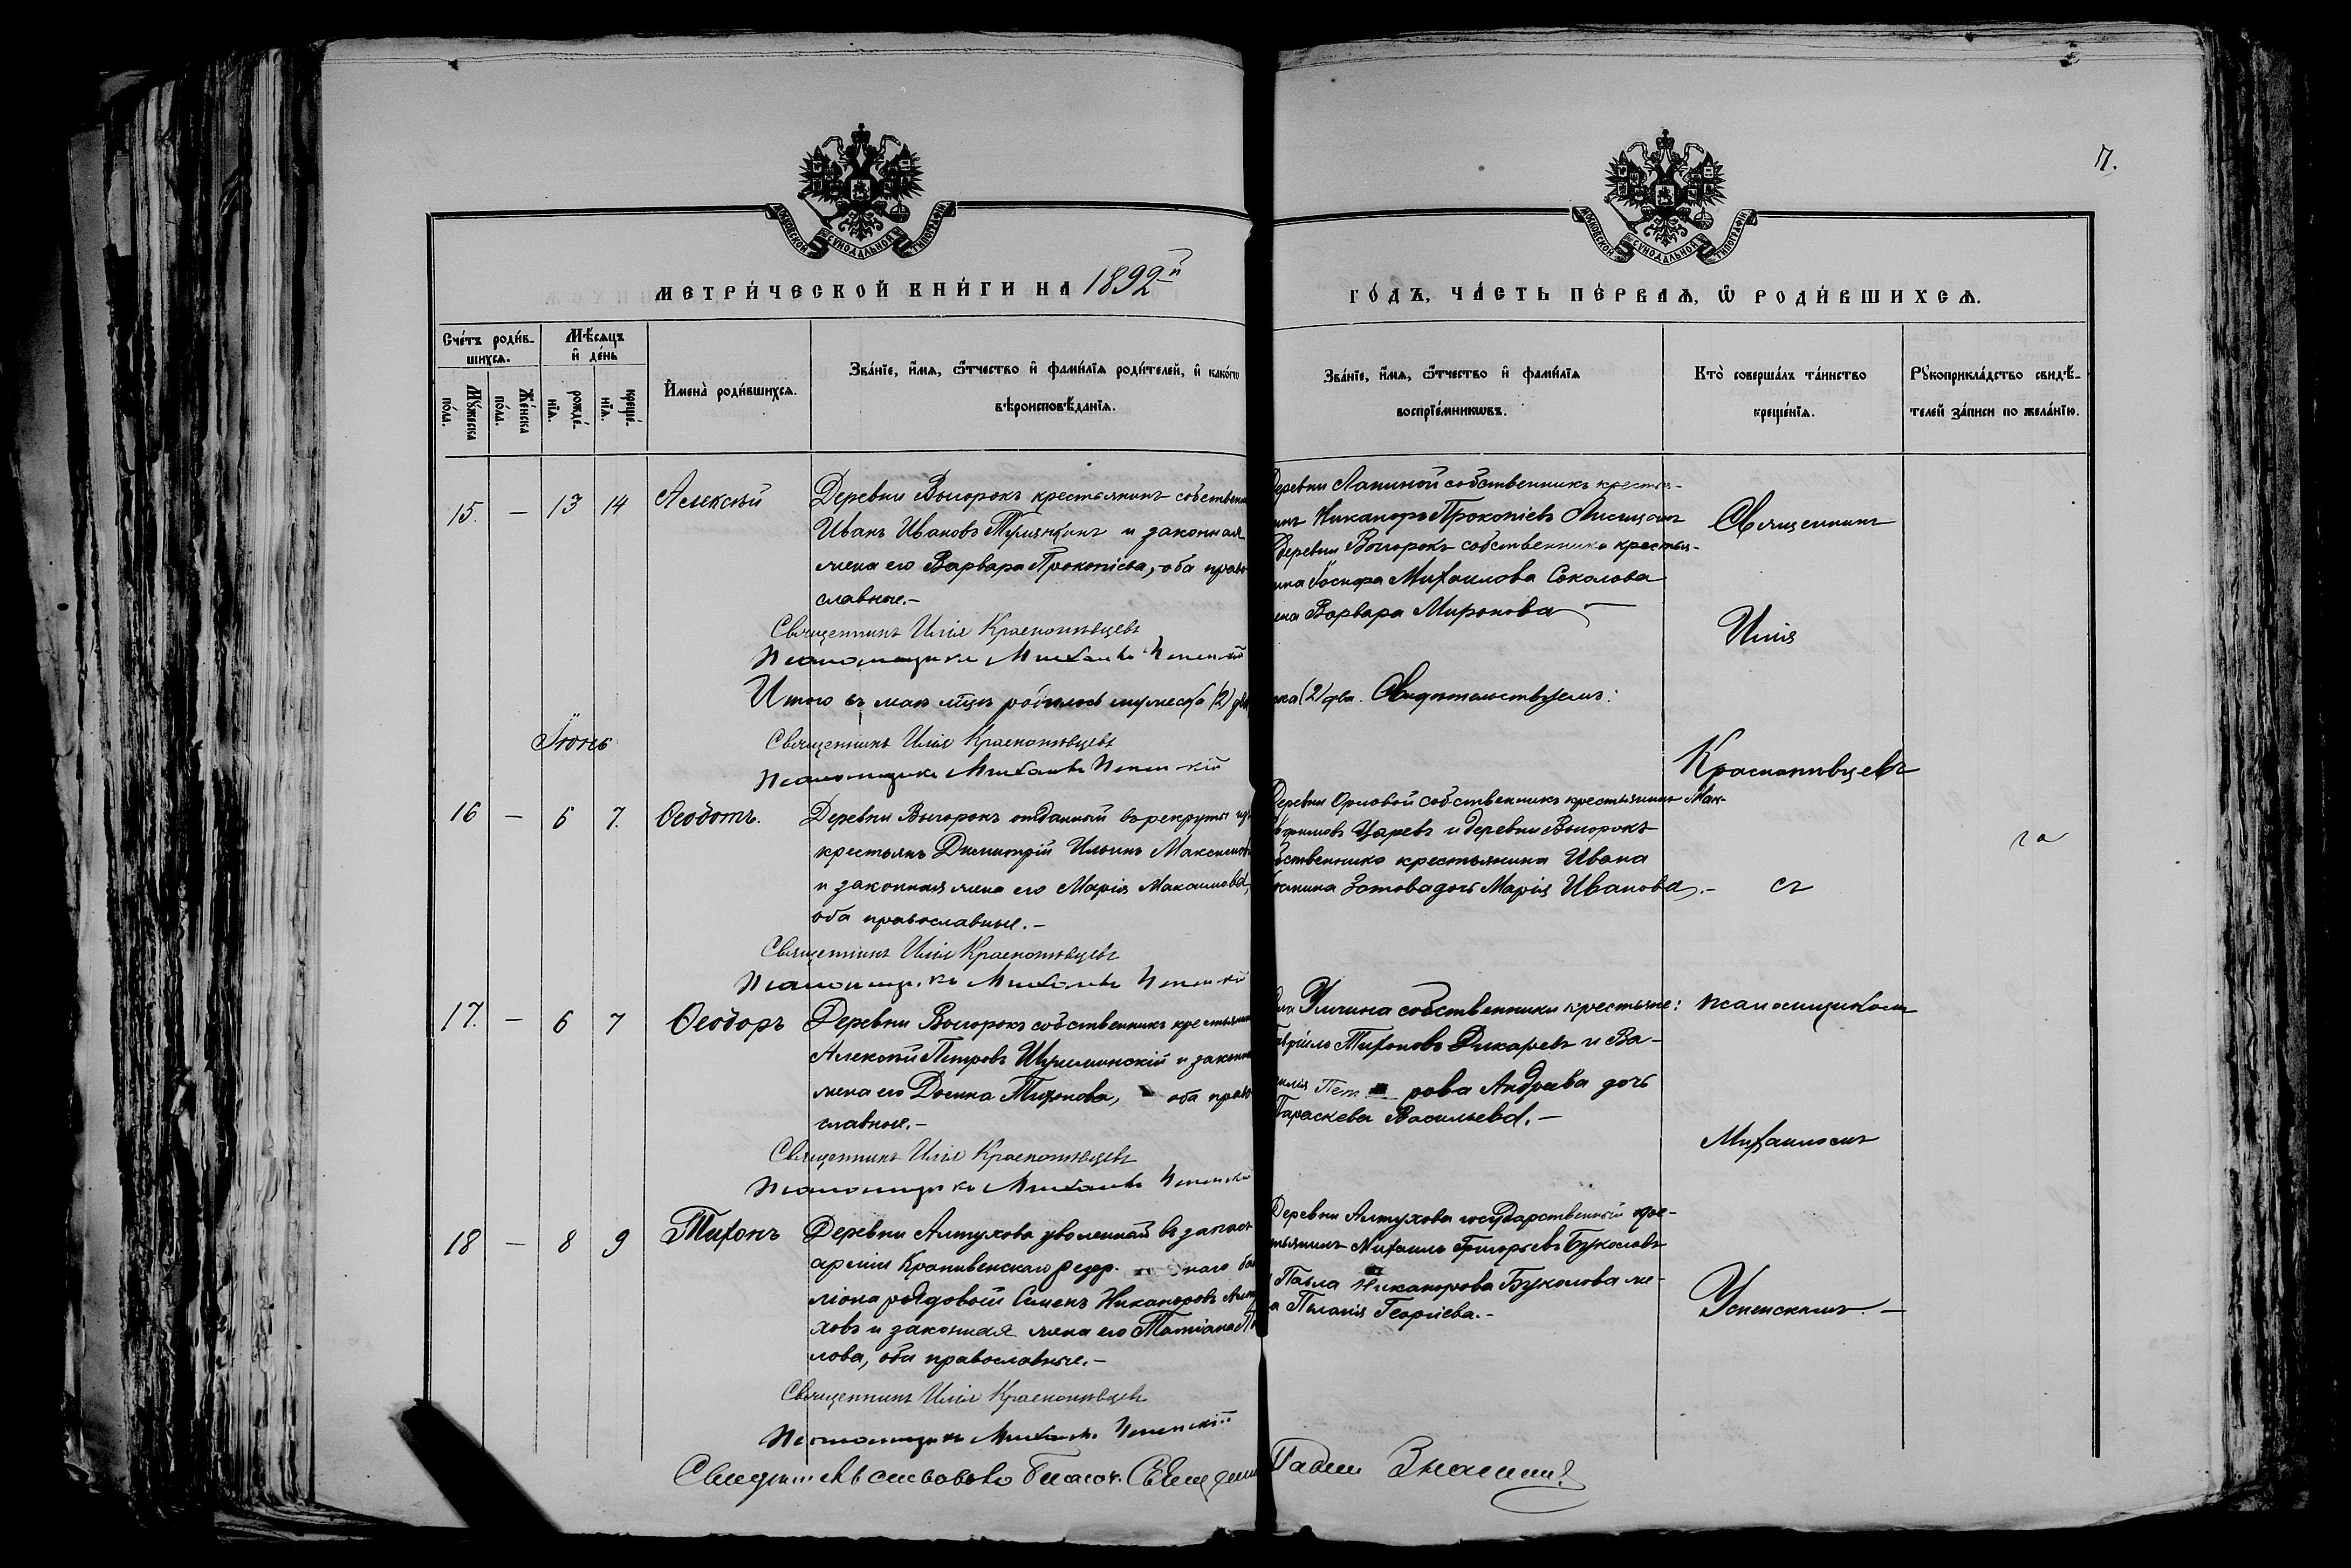 7.
МОСКОВСКОЙ СѴНОДАЛЬНОЙ ТИПОГРАФІИ
МОСКОВСКОЙ СѴНОДАЛЬНОЙ ТИПОГРАФІИ
МЕТРИ́ЧЕСКОЙ КНИ́ГИ НА 1892й
ГО́ДЪ, ЧА́СТЬ ПЕ́РВАѦ, Ѡ҆ РОДИ́ВШИХСѦ.
Сче́тъ роди́в-
шихсѧ.
Мꙋ́жеска по́ла.
Же́нска по́ла.
Мѣ́сѧцъ
и҆ де́нь
рожде́-
нїѧ.
креще́-
нїѧ.
И҆мена̀ роди́вшихсѧ.
Зва́нїе, и҆́мѧ, ѻ҆́тчество и҆ фами́лїѧ роди́телей, и҆ како́гѡ
вѣроисповѣ́данїѧ.
Зва́нїе, и҆́мѧ, ѻ҆́тчество и҆ фами́лїѧ
воспрїе́мникѡвъ.
Кто̀ соверша́лъ та́инство
креще́нїѧ.
Рꙋкоприкла́дство свидѣ́-
телей за́писи по жела́нїю.
15. — 13 14 Алексѣй
Деревни Выгорокъ крестьянинъ собственн
Иванъ Ивановъ и законная
жена его Варвара Прокопіева, оба право
славные.—
Священникъ Илія Краснопѣвцевъ
Псаломщикъ Михаилъ Успенскій
Деревни Лапиной собственникъ крестья-
инъ Никаноръ Прокопіевъ Лисицынъ
Деревни Выгорокъ собственника крестья-
ина Іосифа Михаилова Соколова
ена Варвара Миронова —
Священникъ
Илія
Краснопѣвцевъ
съ
псаломщикомъ
Михаиломъ
Успенскимъ. —
Итого въ маѣ мцѣ родилось мужеска (2) два
ска (2) два. Свидѣтельствуемъ:
Священникъ Илія Краснопѣвцевъ
Псаломщикъ Михаилъ Успенскій
Іюнь
16 — 6 7. Ѳеодотъ.
Деревни Выгорокъ отданный въ рекруты изъ
крестьянъ Димитрій Ильинъ Максимовъ
и законная жена его Марія Максимова,
оба православные.—
Священникъ Илія Краснопѣвцевъ
Псаломщикъ Михаилъ Успенскій
Деревни Орловой собственникъ крестьянинъ Мак-
Царевъ и деревни Выгорокъ
бственника крестьянина Ивана
Зотова дочь Марія Иванова.—
17. — 6 7 Ѳеодоръ
Деревни Выгорокъ собственникъ крестьянин
Алексѣй Петровъ и законн
жена его Домна Тихонова, оба право
славные.—
Священникъ Илія Краснопѣвцевъ
Псаломщикъ Михаилъ Успенскій
собственники крестьяне:
авріилъ Тихоновъ Дикаревъ и Ва-
силія Петрова Андреева дочь
Параскева Васильева.—
18 — 8 9 Тихонъ
Деревни Алтухова уволенный въ запасъ
арміи Крапивенскаго резер наго ба
ліона рядовой Сименъ Никаноровъ Алту
ховъ и законная жена его Татіана
лова, оба православные.—
Священникъ Илія Краснопѣвцевъ
Псаломщикъ Михаилъ Успенскій
Деревни Алтухова государственный крес-
тьянинъ Михаилъ Григорьевъ Буколовъ
Павла Никанорова Буколова же-
а Пелагія Георгіева.—
Свидѣтельствовалъ Благоч. Священ